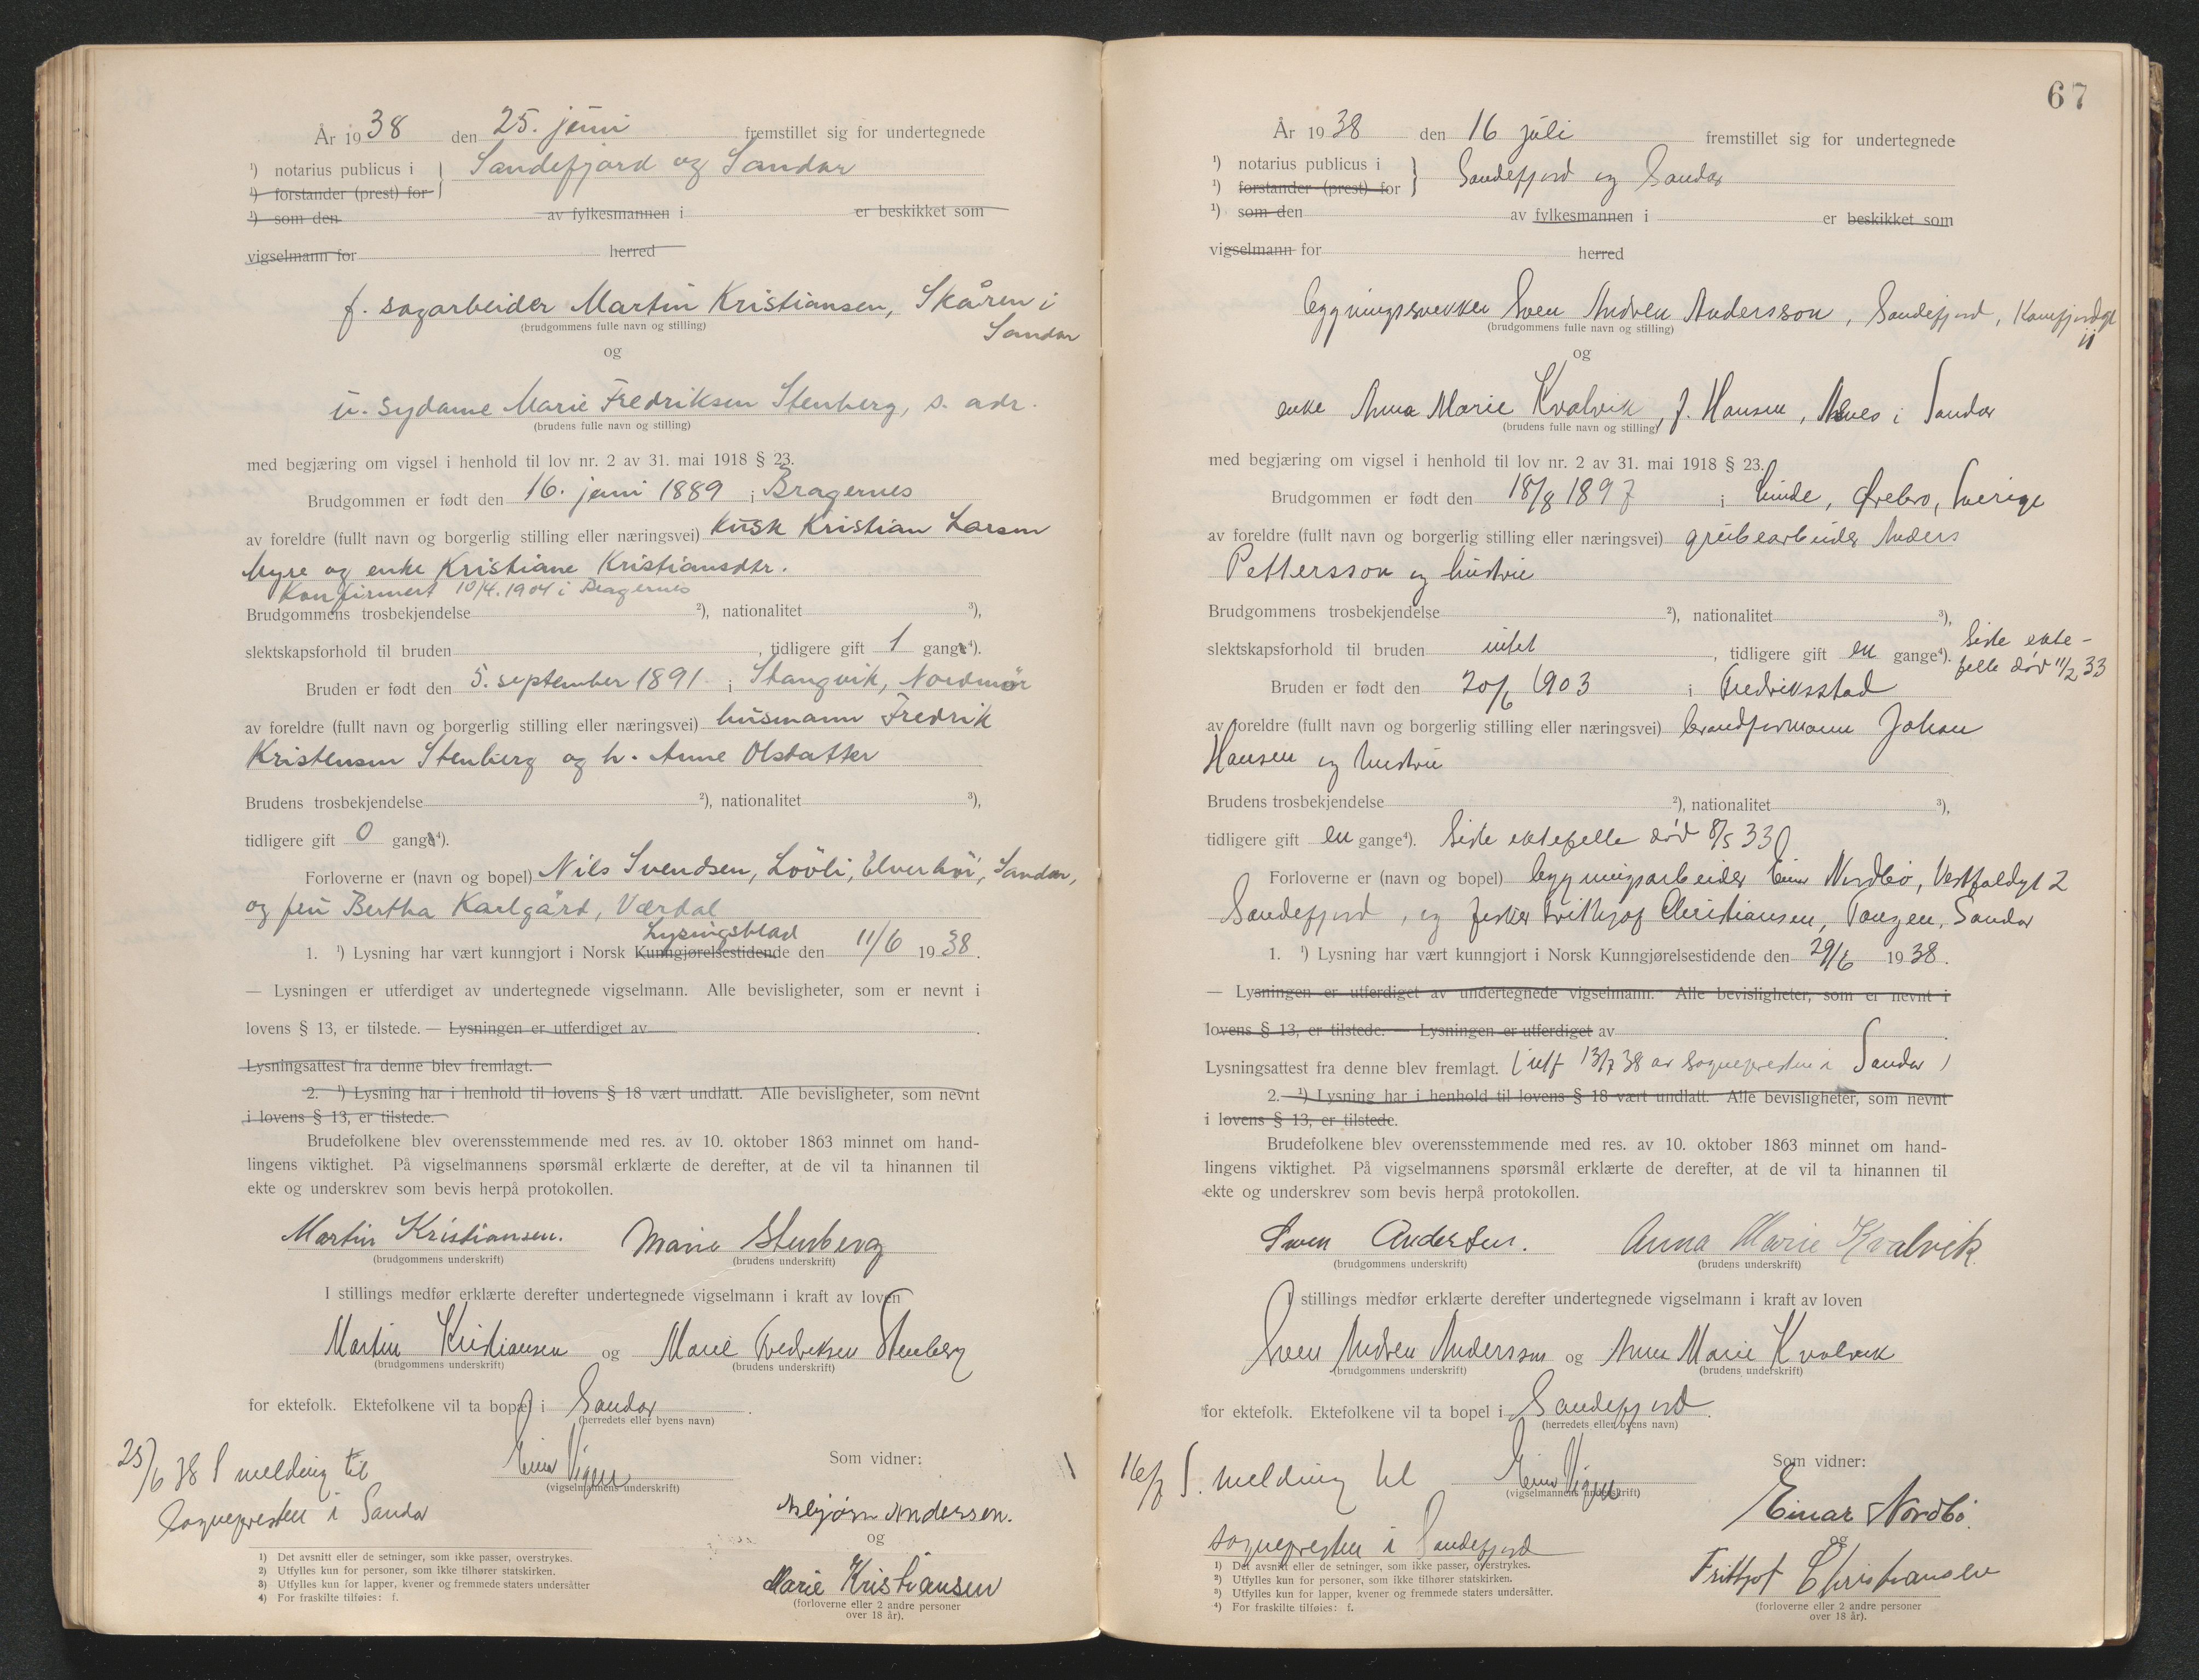 År 1938 den 25. juni fremstillet sig for undertegnede
¹) notarius publicus i } Sandefjord og Sandar
¹) forstander (prest) for
¹) som den av fylkesmannen i er beskikket som
vigselmann for herred
f. sagarbeider Martin Kristiansen, Skåren i
Sandar
(brudgommens fulle navn og stilling)
og
u. sydame Marie Fredriksen Stenberg, s. adr.
(brudens fulle navn og stilling)
med begjæring om vigsel i henhold til lov nr. 2 av 31. mai 1918 § 23.
Brudgommen er født den 16. juni 1889 i Bragernes
av foreldre (fullt navn og borgerlig stilling eller næringsvei) kusk Kristian Larsen
Myre og enke Kristiane Kristiansdtr.
Konfirmert 10/4.1904 i Bragernes
Brudgommens trosbekjendelse ²), nationalitet ³),
slektskapsforhold til bruden , tidligere gift 1 gang⁴).
Bruden er født den 5. september 1891 i Stangvik, Nordmør
av foreldre (fullt navn og borgerlig stilling eller næringsvei) husmann Fredrik
Kristensen Stenberg og h. Anne Olsdatter
Brudens trosbekjendelse ²), nationalitet ³),
tidligere gift 0 gang⁴).
Forloverne er (navn og bopel) Nils Svendsen, Lövli, Elverhöi, Sandar,
og fru Bertha Karlgård, Værdal
Lysingsblad
1. ¹) Lysning har vært kunngjort i Norsk Kunngjørelsestidende den 11/6 1938.
— Lysningen er utferdiget av undertegnede vigselmann. Alle bevisligheter, som er nevnt i
lovens § 13, er tilstede. — Lysningen er utferdiget av .
Lysningsattest fra denne blev fremlagt.
2. ¹) Lysning har i henhold til lovens § 18 vært undlatt. Alle bevisligheter, som nevnt
i lovens § 13, er tilstede.
Brudefolkene blev overensstemmende med res. av 10. oktober 1863 minnet om hand-
lingens viktighet. På vigselmannens spørsmål erklærte de derefter, at de vil ta hinannen til
ekte og underskrev som bevis herpå protokollen.
Martin Kristiansen. Marie Stenberg
(brudgommens underskrift) (brudens underskrift)
I stillings medfør erklærte derefter undertegnede vigselmann i kraft av loven
Martin Kristiansen og Marie Fredriksen Stenberg
(brudgommens underskrift) (brudens underskrift)
for ektefolk. Ektefolkene vil ta bopel i Sandar .
(herredets eller byens navn)
25/6 38 S meldling til
sognepresten i Sandar
Einar Vigen
(vigselmannens underskrift)
Som vidner:
Asbjørn Andersen.
og
Marie Kristiansen
(forloverne eller 2 andre personer
over 18 år).
1) Det avsnitt eller de setninger, som ikke passer, overstrykes.
2) Utfylles kun for personer, som ikke tilhører statskirken.
3) Utfylles kun for lapper, kvener og fremmede staters undersåtter
4) For fraskilte tilføies: f.
67
År 1938 den 16 juli fremstillet sig for undertegnede
¹) notarius publicus i } Sandefjord og Sandar
¹) forstander (prest) for
¹) som den av fylkesmannen i er beskikket som
vigselmann for herred
bygningssnekker Sven Andren Andersson, Sandefjord,
11
(brudgommens fulle navn og stilling)
og
enke Anna Marie Kvalvik, f. Hansen, i Sandar
(brudens fulle navn og stilling)
med begjæring om vigsel i henhold til lov nr. 2 av 31. mai 1918 § 23.
Brudgommen er født den 18/8 1897 i Linde, Ørebro, Sverige
av foreldre (fullt navn og borgerlig stilling eller næringsvei) grubearbeider Anders
Pettersson og hustru
Brudgommens trosbekjendelse ²), nationalitet ³),
slektskapsforhold til bruden intet , tidligere gift en gange⁴). Siste ekte-
felle død 11/2 33
Bruden er født den 20/6 1903 i Fredriksstad
av foreldre (fullt navn og borgerlig stilling eller næringsvei) brandformann Johan
Hansen og hustru
Brudens trosbekjendelse ²), nationalitet ³),
tidligere gift en gange⁴). Siste ektefelle död 8/5 33
Forloverne er (navn og bopel) bygningsarbeider Einar Nordbö, Vestfoldgt 2
Sandefjord, og fisker Frithjof Christiansen, Tangen, Sandar
1. ¹) Lysning har vært kunngjort i Norsk Kunngjørelsestidende den 29/6 1938.
— Lysningen er utferdiget av undertegnede vigselmann. Alle bevisligheter, som er nevnt i
lovens § 13, er tilstede. — Lysningen er utferdiget av .
Lysningsattest fra denne blev fremlagt. (utf 13/7 38 av sognepresten i Sandar)
2. ¹) Lysning har i henhold til lovens § 18 vært undlatt. Alle bevisligheter, som nevnt
i lovens § 13, er tilstede.
Brudefolkene blev overensstemmende med res. av 10. oktober 1863 minnet om hand-
lingens viktighet. På vigselmannens spørsmål erklærte de derefter, at de vil ta hinannen til
ekte og underskrev som bevis herpå protokollen.
Sven Andersen. Anna Marie Kvalvik.
(brudgommens underskrift) (brudens underskrift)
I stillings medfør erklærte derefter undertegnede vigselmann i kraft av loven
Sven Andren Andersson og Anna Marie Kvalvik
(brudgommens underskrift) (brudens underskrift)
for ektefolk. Ektefolkene vil ta bopel i Sandefjord.
(herredets eller byens navn)
16/7 S. melding til
sognepresten i Sandefjord
Einar Vigen
(vigselmannens underskrift)
Som vidner:
Einar Nordbö.
og
Frithjof Christiansen
(forloverne eller 2 andre personer
over 18 år).
1) Det avsnitt eller de setninger, som ikke passer, overstrykes.
2) Utfylles kun for personer, som ikke tilhører statskirken.
3) Utfylles kun for lapper, kvener og fremmede staters undersåtter.
4) For fraskilte tilføies: f.